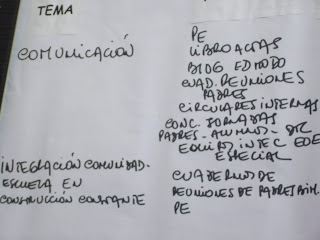 TEMA
COMUNICACIÓN
PE
LIBRO ACTAS
BLOG EDMODO
CUAD. REUNIONES
PADRES
CIRCULARES INTERNAS
CONC. JORNADAS
PADRES - ALUMNOS -
EQUIPO INTEC EOE
ESPECIAL
INTEGRACIÓN COMUNIDAD-
ESCUELA EN
CONSTRUCCIÓN CONSTANTE
CUADERNO DE
REUNIONES DE PADRES
PE